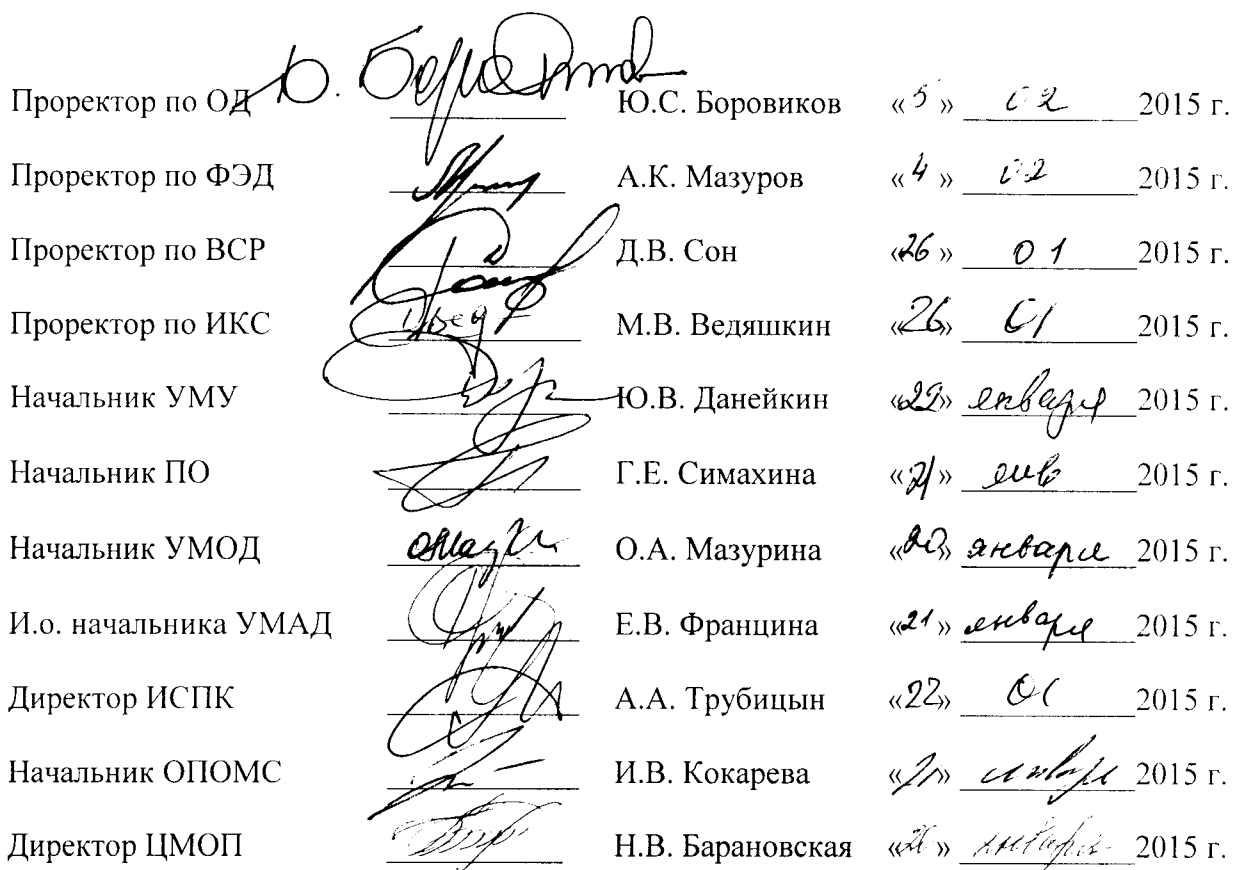 Проректор по ОД Ю.С. Боровиков «5» 02 2015 г.
Проректор по ФЭД А.К. Мазуров «4» 02 2015 г.
Проректор по ВСР Д.В. Сон «26» 01 2015 г.
Проректор по ИКС М.В. Ведяшкин «26» 01 2015 г.
Начальник УМУ Ю.В. Данейкин «22» января 2015 г.
Начальник ПО Г.Е. Симахина «21» янв 2015 г.
Начальник УМОД О.А. Мазурина «20» января 2015 г.
И.о. начальника УМАД Е.В. Францина «21» января 2015 г.
Директор ИСПК А.А. Трубицын «22» 01 2015 г.
Начальник ОПОМС И.В. Кокарева «21» января 2015 г.
Директор ЦМОП Н.В. Барановская « » января 2015 г.